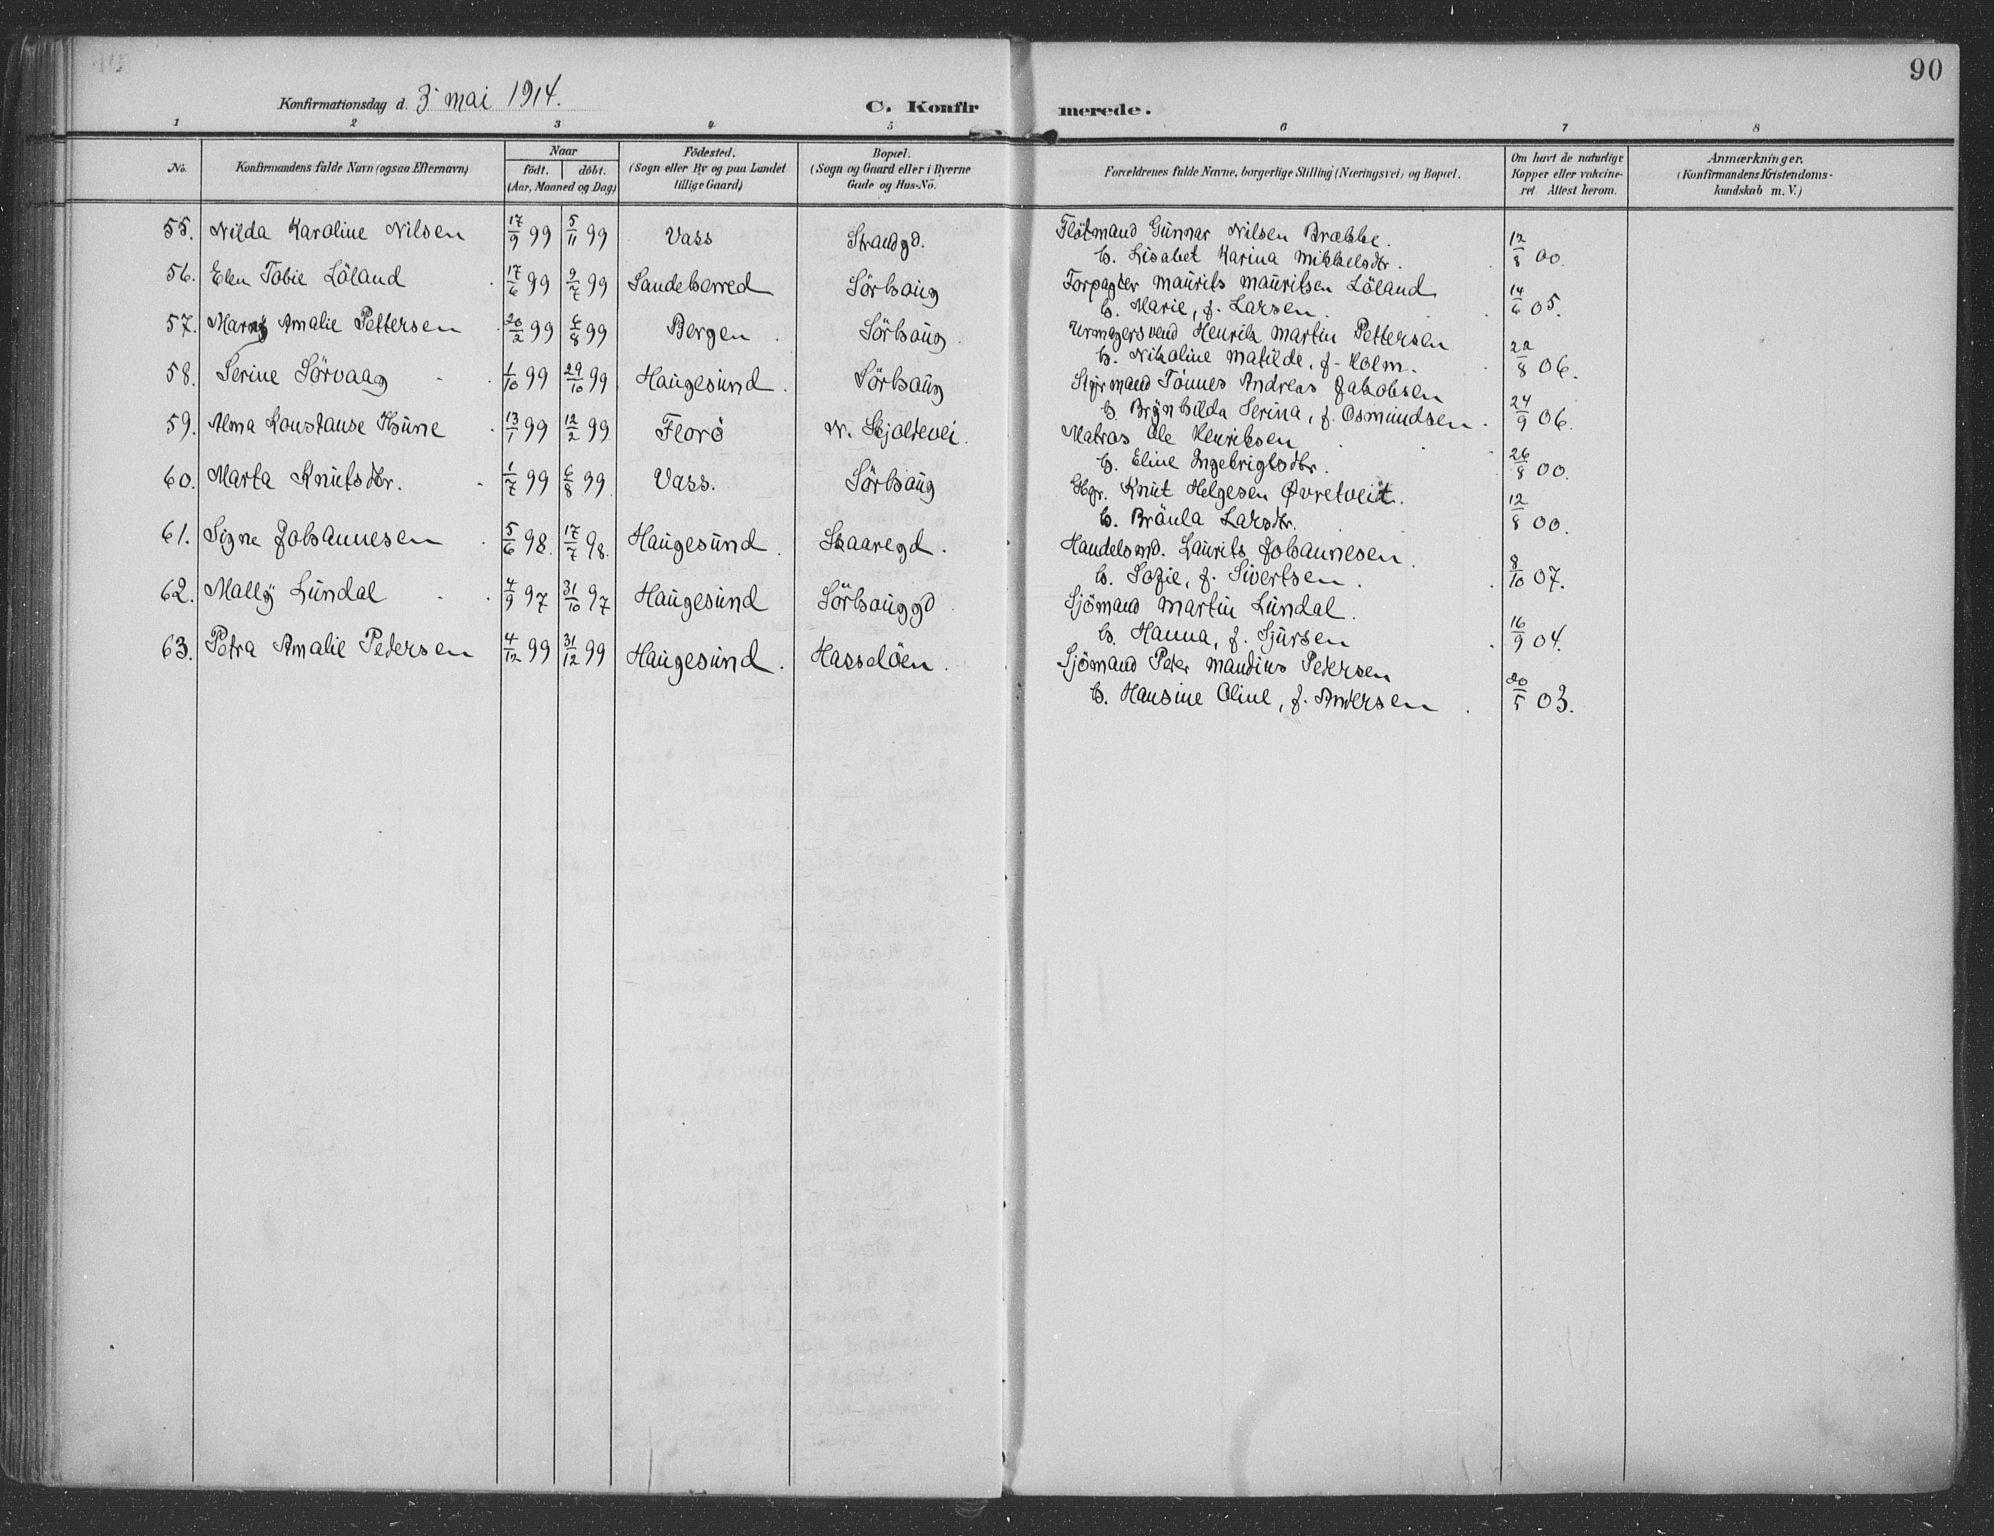 90
Konfirmationsdag d. 3 mai 1914.
C. Konfirmerede.
1 2 3 4 5 6 7 8
No. Konfirmandens fulde Navn (ogsaa Efternavn) Naar födt. döbt. (Aar, Maaned og Dag) Födested. (Sogn eller By og paa Landet tillige Gaard) Bopæl. (Sogn og Gaard eller i Byerne Gade og Hus-No. Forældrenes fulde Navne, borgerlige Stilling (Næringsvei) og Bopæl. Om havt de naturlige Kopper eller vakcineret. Attest herom. Anmærkninger. (Konfirmandens Kristendomskundskab m. V.)
55. Nilda Karoline Nilsen 17/9 99 5/11 99 Vass Strandgd. Flötmand Gunnar Nilsen Brække.
b. Lisabet Karina Mikkelsdtr. 12/8 00.
56. Elen Tobie Löland 17/6 99 9/7 99 Sandeherred Sörhaug Forpagter Maurits Mauritsen Löland
b. Marie, f. Larsen. 14/6 05.
57. Marny Amalie Pettersen 20/2 99 6/8 99 Bergen Sörhaug Urmagersvend Henrik Martin Pettersen
b. Nikoline Matilde, f. Holm. 22/8 06.
58. Serine Sörvaag 1/10 99 29/10 99 Haugesund Sörhaug Styrmand Tönnes Andreas Jakobsen
b. Brynhilda Serina, f. Osmundsen. 24/9 06.
59. Alma Konstanse Hüne 13/1 99 12/2 99 Florö N. Skjoltevei. Matros Ole Henriksen
b. Eline Ingebrigtsdtr. 26/8 00.
60. Marta Knutsdtr. 1/7 99 6/8 99. Vass. Sörhaug Hgr. Knut Helgesen Øvretveit.
b. Bräula Larsdtr. 12/8 00.
61. Signe Johannesen 5/6 98. 17/7 98. Haugesund Skaaregd. Handelsmd. Laurits Johannesen
b. Sofie, f. Sivertsen. 8/10 07.
62. Mally Lundal 4/9 97 31/10 97 Haugesund Sörhauggd. Sjömand Martin Lundal.
b. Hanna, f. Sjursen 16/9 04.
63. Petra Amalie Pedersen 4/12 99 31/12 99 Haugesund. Hasselöen. Sjömand Peter Mandius Petersen
b. Hansine Oline, f. Andersen. 20/5 03.